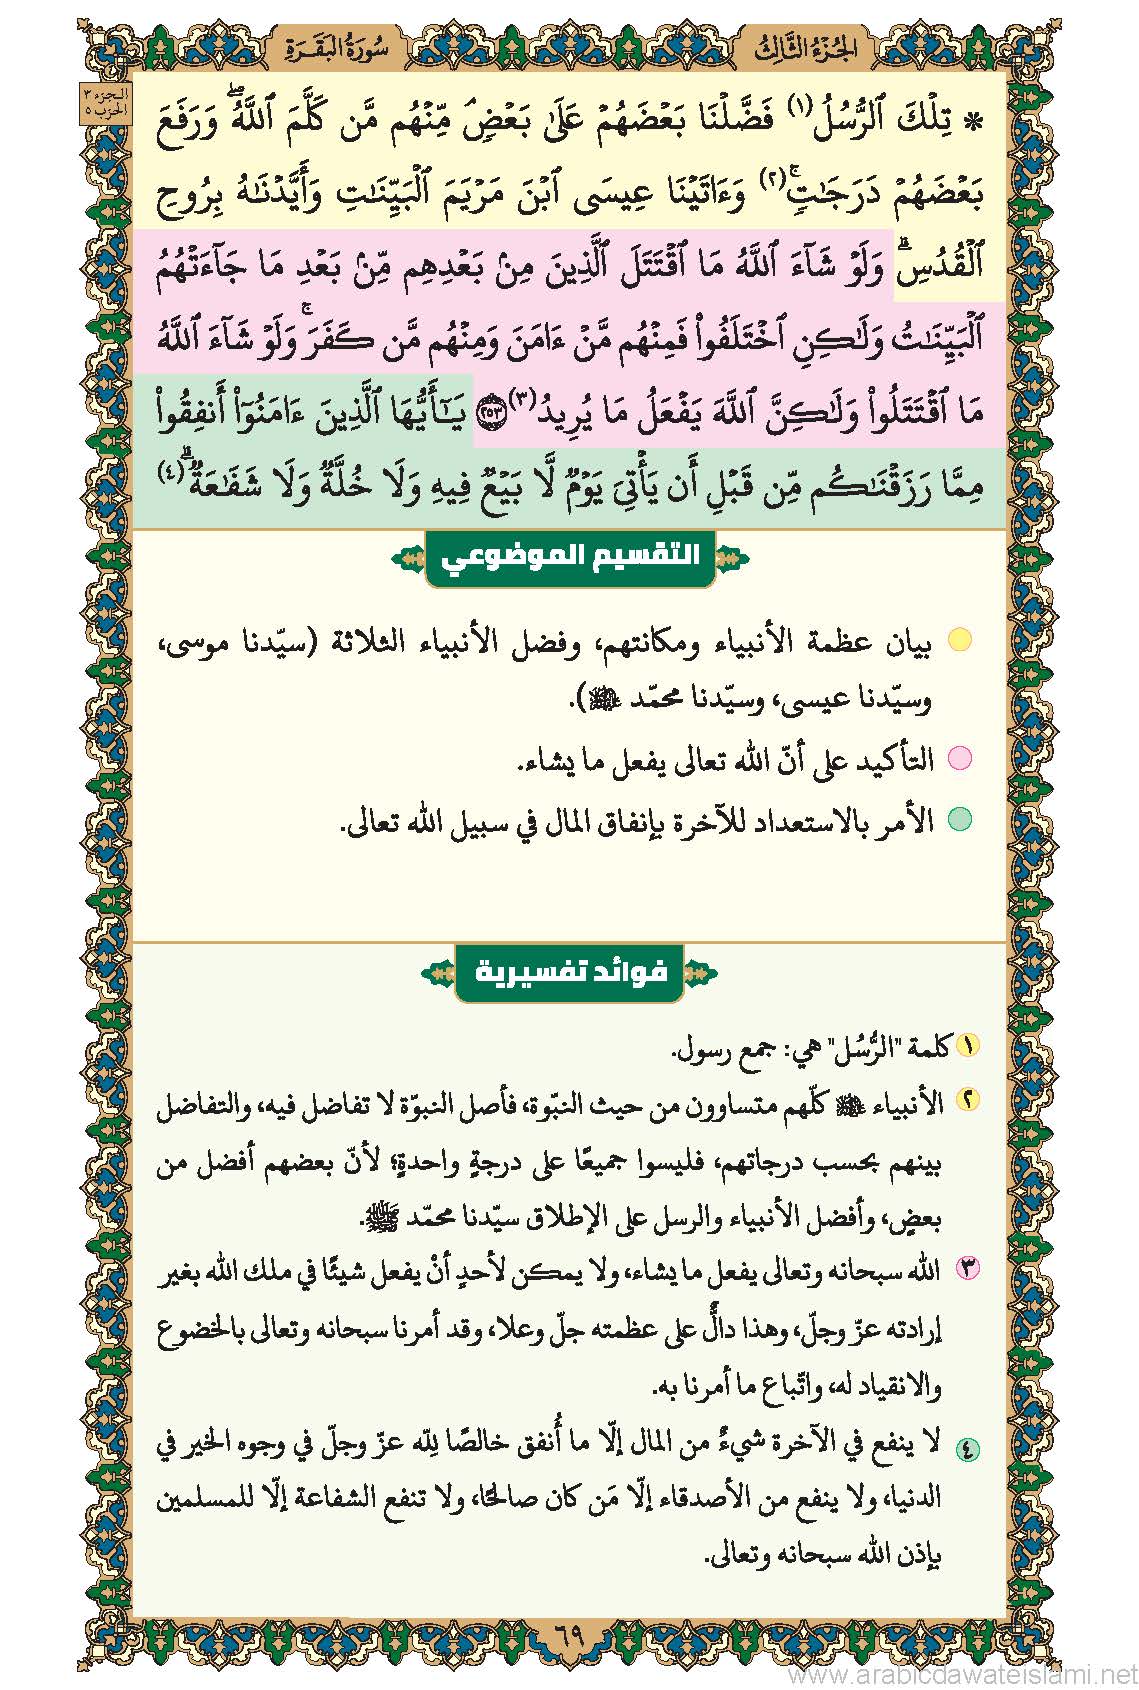 الجُزْءُ الثَّالِثُ
سُورَةُ البَقَرَةِ
الجزء ٣
الحزب ٥
* تِلْكَ ٱلرُّسُلُ(١) فَضَّلْنَا بَعْضَهُمْ عَلَىٰ بَعْضٖۘ مِّنْهُم مَّن كَلَّمَ ٱللَّهُۖ وَرَفَعَ
بَعْضَهُمْ دَرَجَٰتٖۚ(٢) وَءَاتَيْنَا عِيسَى ٱبْنَ مَرْيَمَ ٱلْبَيِّنَٰتِ وَأَيَّدْنَٰهُ بِرُوحِ
ٱلْقُدُسِۗ وَلَوْ شَآءَ ٱللَّهُ مَا ٱقْتَتَلَ ٱلَّذِينَ مِنۢ بَعْدِهِم مِّنۢ بَعْدِ مَا جَآءَتْهُمُ
ٱلْبَيِّنَٰتُ وَلَٰكِنِ ٱخْتَلَفُوا۟ فَمِنْهُم مَّنْ ءَامَنَ وَمِنْهُم مَّن كَفَرَۚ وَلَوْ شَآءَ ٱللَّهُ
مَا ٱقْتَتَلُوا۟ وَلَٰكِنَّ ٱللَّهَ يَفْعَلُ مَا يُرِيدُ(٣) ٢٥٣ يَٰٓأَيُّهَا ٱلَّذِينَ ءَامَنُوٓا۟ أَنفِقُوا۟
مِمَّا رَزَقْنَٰكُم مِّن قَبْلِ أَن يَأْتِيَ يَوْمٞ لَّا بَيْعٞ فِيهِ وَلَا خُلَّةٞ وَلَا شَفَٰعَةٞۗ(٤)
التقسيم الموضوعي
بيان عظمة الأنبياء ومكانتهم، وفضل الأنبياء الثلاثة (سيّدنا موسى،
وسيّدنا عيسى، وسيّدنا محمّد ﷺ).
التأكيد على أنّ الله تعالى يفعل ما يشاء.
الأمر بالاستعداد للآخرة بإنفاق المال في سبيل الله تعالى.
فوائد تفسيرية
١ كلمة "الرُّسُل" هي: جمع رسول.
٢ الأنبياء كلّهم متساوون من حيث النبّوة، فأصل النبوّة لا تفاضل فيه، والتفاضل
بينهم بحسب درجاتهم، فليسوا جميعًا على درجةٍ واحدةٍ؛ لأنّ بعضهم أفضل من
بعضٍ، وأفضل الأنبياء والرسل على الإطلاق سيّدنا محمّد ﷺ.
٣ الله سبحانه وتعالى يفعل ما يشاء، ولا يمكن لأحدٍ أنْ يفعل شيئًا في ملك الله بغير
إرادته عزّ وجلّ، وهذا دالٌّ على عظمته جلّ وعلا، وقد أمرنا سبحانه وتعالى بالخضوع
والانقياد له، واتّباع ما أمرنا به.
٤ لا ينفع في الآخرة شيءٌ من المال إلّا ما أُنفق خالصًا لِلّه عزّ وجلّ في وجوه الخير في
الدنيا، ولا ينفع من الأصدقاء إلّا مَن كان صالحًا، ولا تنفع الشفاعة إلّا للمسلمين
بإذن الله سبحانه وتعالى.
٦٩
www.arabicdawateislami.net